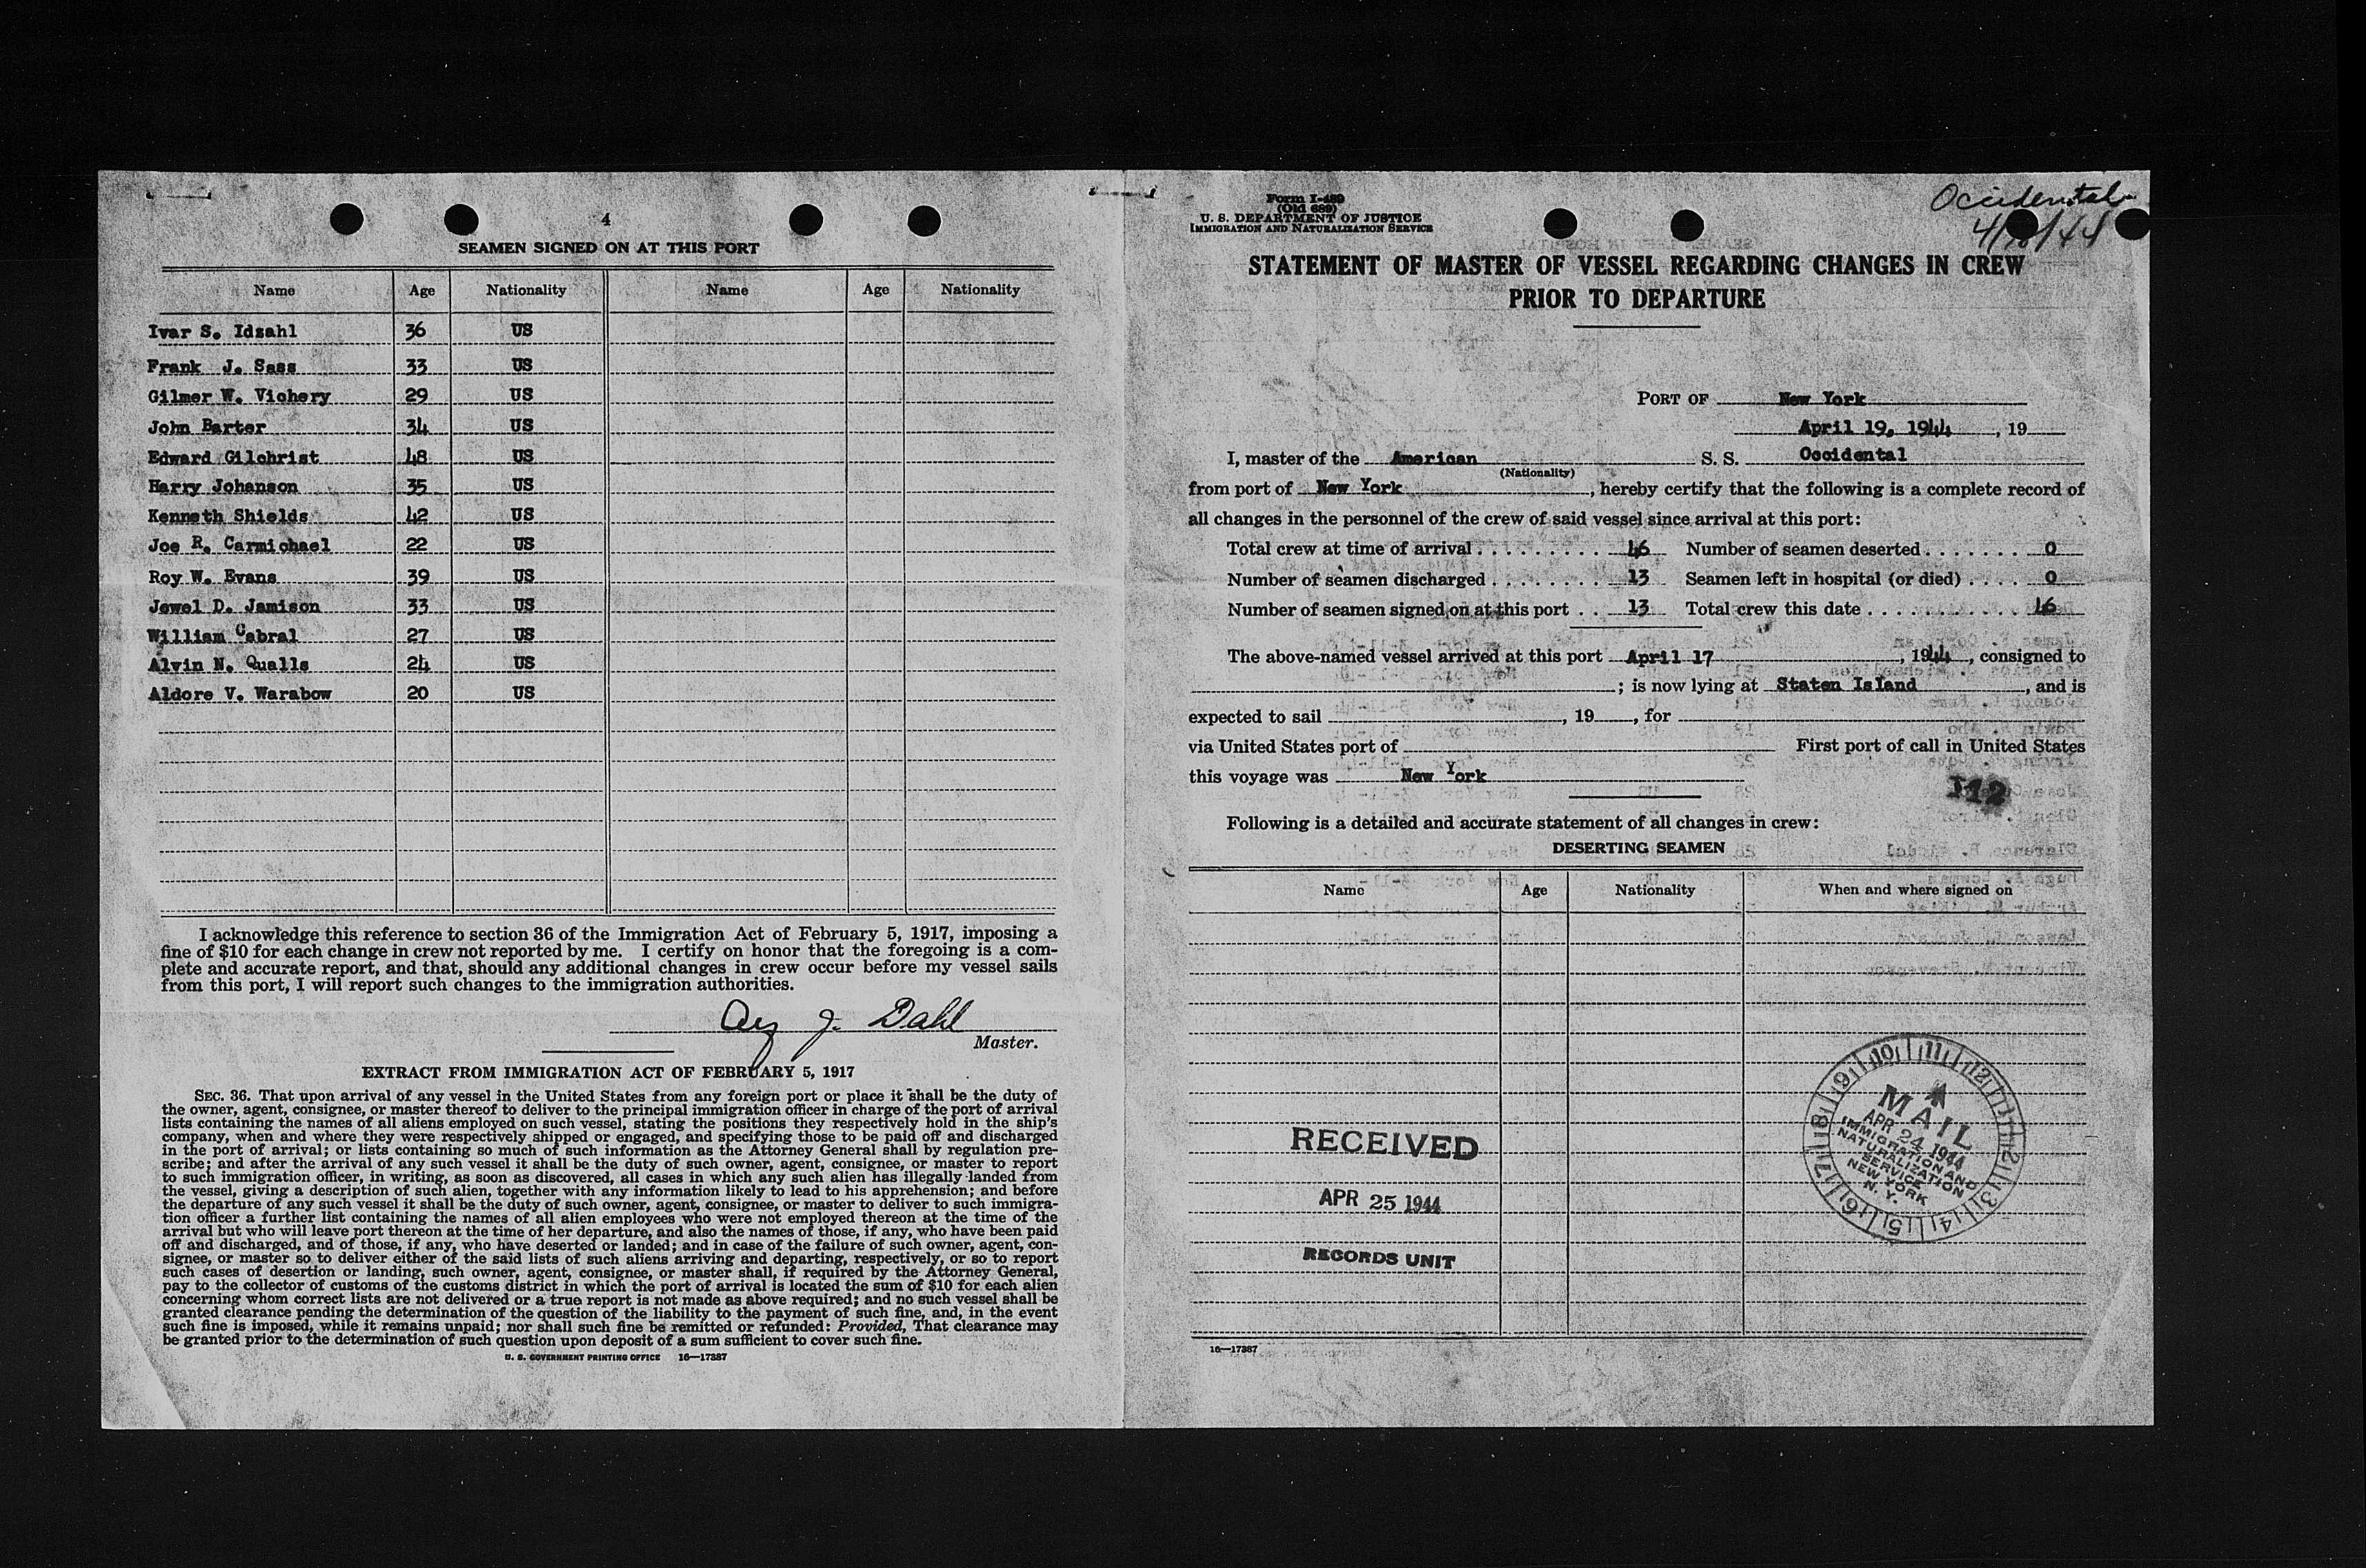 4
SEAMEN SIGNED ON AT THIS PORT
Name Age Nationality Name Age Nationality
Ivar S. Idsahl 36 US
Frank J. Sass 33 US
Gilmer W. Vichery 29 US
John Barter 34 US
Edward Gilchrist 48 US
Harry Johanson 35 US
Kenneth Shields 42 US
Joe R. Carmichael 22 US
Roy W. Evans 39 US
Jewel D. Jamison 33 US
William Cabral 27 US
Alvin N. Qualls 24 US
Aldore V. Warabow 20 US
I acknowledge this reference to section 36 of the Immigration Act of February 5, 1917, imposing a
fine of $10 for each change in crew not reported by me. I certify on honor that the foregoing is a com-
plete and accurate report, and that, should any additional changes in crew occur before my vessel sails
from this port, I will report such changes to the immigration authorities.
J. Dahl
Master.
EXTRACT FROM IMMIGRATION ACT OF FEBRUARY 5, 1917
SEC. 36. That upon arrival of any vessel in the United States from any foreign port or place it shall be the duty of
the owner, agent, consignee, or master thereof to deliver to the principal immigration officer in charge of the port of arrival
lists containing the names of all aliens employed on such vessel, stating the positions they respectively hold in the ship's
company, when and where they were respectively shipped or engaged, and specifying those to be paid off and discharged
in the port of arrival; or lists containing so much of such information as the Attorney General shall by regulation pre-
scribe; and after the arrival of any such vessel it shall be the duty of such owner, agent, consignee, or master to report
to such immigration officer, in writing, as soon as discovered, all cases in which any such alien has illegally landed from
the vessel, giving a description of such alien, together with any information likely to lead to his apprehension; and before
the departure of any such vessel it shall be the duty of such owner, agent, consignee, or master to deliver to such immigra-
tion officer a further list containing the names of all alien employees who were not employed thereon at the time of the
arrival but who will leave port thereon at the time of her departure, and also the names of those, if any, who have been paid
off and discharged, and of those, if any, who have deserted or landed; and in case of the failure of such owner, agent, con-
signee, or master so to deliver either of the said lists of such aliens arriving and departing, respectively, or so to report
such cases of desertion or landing, such owner, agent, consignee, or master shall, if required by the Attorney General,
pay to the collector of customs of the customs district in which the port of arrival is located the sum of $10 for each alien
concerning whom correct lists are not delivered or a true report is not made as above required; and no such vessel shall be
granted clearance pending the determination of the question of the liability to the payment of such fine, and, in the event
such fine is imposed, while it remains unpaid; nor shall such fine be remitted or refunded: Provided, That clearance may
be granted prior to the determination of such question upon deposit of a sum sufficient to cover such fine.
U. S. GOVERNMENT PRINTING OFFICE 16—17387
Form I-489
(Old 689)
U. S. DEPARTMENT OF JUSTICE
IMMIGRATION AND NATURALIZATION SERVICE
Occidental
STATEMENT OF MASTER OF VESSEL REGARDING CHANGES IN CREW
PRIOR TO DEPARTURE
PORT OF New York
April 19, 1944, 19
I, master of the American S. S. Occidental
(Nationality)
from port of New York, hereby certify that the following is a complete record of
all changes in the personnel of the crew of said vessel since arrival at this port:
Total crew at time of arrival 46 Number of seamen deserted 0
Number of seamen discharged 13 Seamen left in hospital (or died) 0
Number of seamen signed on at this port 13 Total crew this date 46
The above-named vessel arrived at this port April 17, 1944, consigned to
; is now lying at Staten Island, and is
expected to sail , 19 , for
via United States port of First port of call in United States
this voyage was New York
112
Following is a detailed and accurate statement of all changes in crew:
DESERTING SEAMEN
Name Age Nationality When and where signed on
RECEIVED
APR 25 1944
RECORDS UNIT
9 10 11 12 1 2 3 4 5 6 7 8
MAIL
APR 24 1944
IMMIGRATION AND
NATURALIZATION
SERVICE
NEW YORK
N. Y.
16—17387